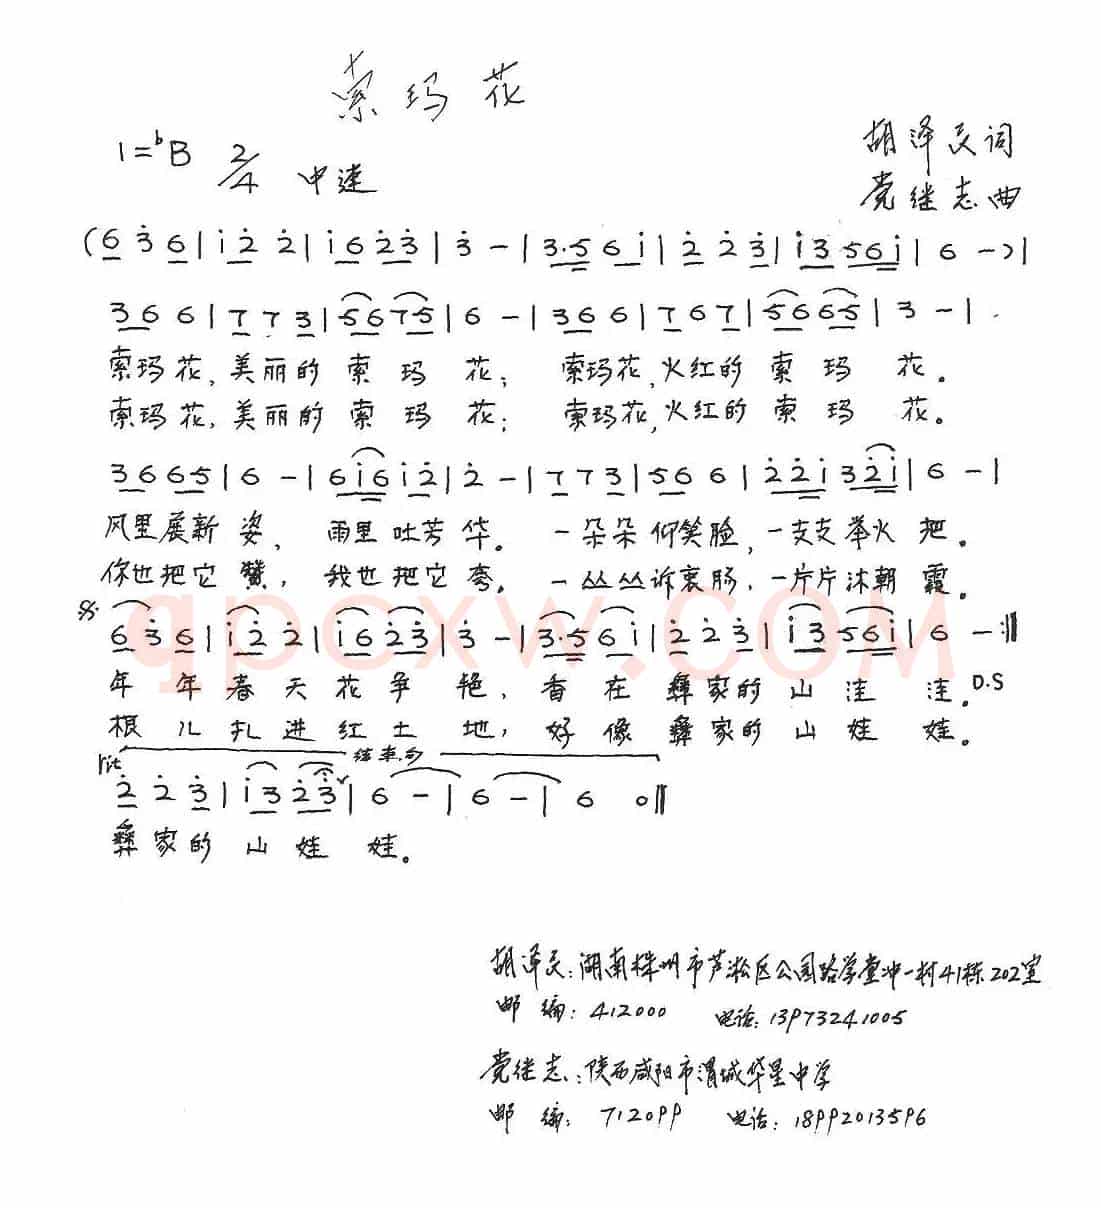 索玛花
1=♭B 2/4 中速
胡泽民词
党继志曲
(6 3̇ 6 | i 2̇ 2̇ | i 6 2̇ 3̇ | 3̇ - | 3̇·5̇ 6 i | 2̇ 2̇ 3̇ | i 3 5 6 i | 6 -) |
3 6 6 | 7 7 3 | 5 6 7 5 | 6 - | 3 6 6 | 7 6 7 | 5 6 6 5 | 3 - |
索玛花,美丽的 索 玛 花; 索玛花,火红的 索 玛 花.
索玛花,美丽的 索 玛 花; 索玛花,火红的 索 玛 花.
3 6 6 5 | 6 - | 6 i 6 i 2̇ | 2̇ - | 7 7 3 | 5 6 6 | 2̇ 2̇ i 3 2̇ i | 6 - |
风里展新 姿, 雨里吐芳 华. 一朵朵仰笑脸,一支支举火 把.
你也把它 赞, 我也把它 夸. 一丛丛诉衷肠,一片片沐朝 霞.
6 3̇ 6 | i 2̇ 2̇ | i 6 2̇ 3̇ | 3̇ - | 3·5 6 i | 2̇ 2̇ 3̇ | i 3 5 6 i | 6 - :‖
年 年春 天花争 艳, 香在 彝家的山洼 洼. D.S
根 儿扎 进红土 地, 好像 彝家的山娃 娃.
rit 结束句
2̇ 2̇ 3̇ | i 3 2̇ 3̇ | 6 - | 6 - | 6 0 ‖
彝家的 山娃 娃.
胡泽民:湖南株州市芦淞区公园路学堂冲一村41栋202室
邮 编: 412000 电话:13973241005
党继志:陕西咸阳市渭城华星中学
邮 编: 712099 电话:18992013596
qpcxw.com